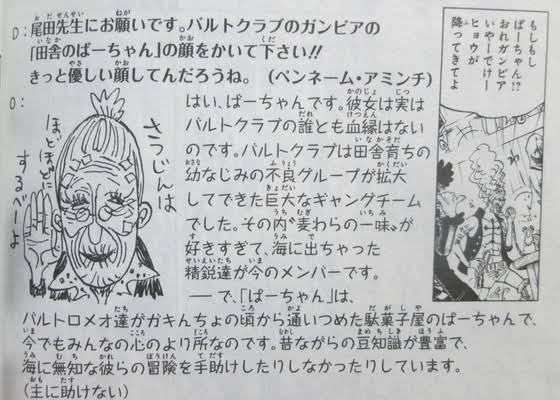 D:尾田先生にお願いです。バルトクラブのガンビアの
「田舎のばーちゃん」の顔をかいて下さい!!
きっと優しい顔してんだろうね。 (ペンネーム・アミンチ)
O:
はい、ばーちゃんです。彼女は実は
バルトクラブの誰とも血縁はない
のです。バルトクラブは田舎育ちの
幼なじみの不良グループが拡大
してできた巨大なギャングチーム
でした。その内"麦わらの一味"が
好きすぎて、海に出ちゃった
精鋭達が今のメンバーです。
——で、「ばーちゃん」は、
バルトロメオ達がガキんちょの頃から通いつめた駄菓子屋のばーちゃんで、
今でもみんなの心のより所なのです。昔ながらの豆知識が豊富で、
海に無知な彼らの冒険を手助けしたりしなかったりしています。
(主に助けない)
さつじんは
ほどほどに
するべーよ
もしもし
ばーちゃん!?
おれガンビア
いやーでけー
ヒョウが
降ってきてよ